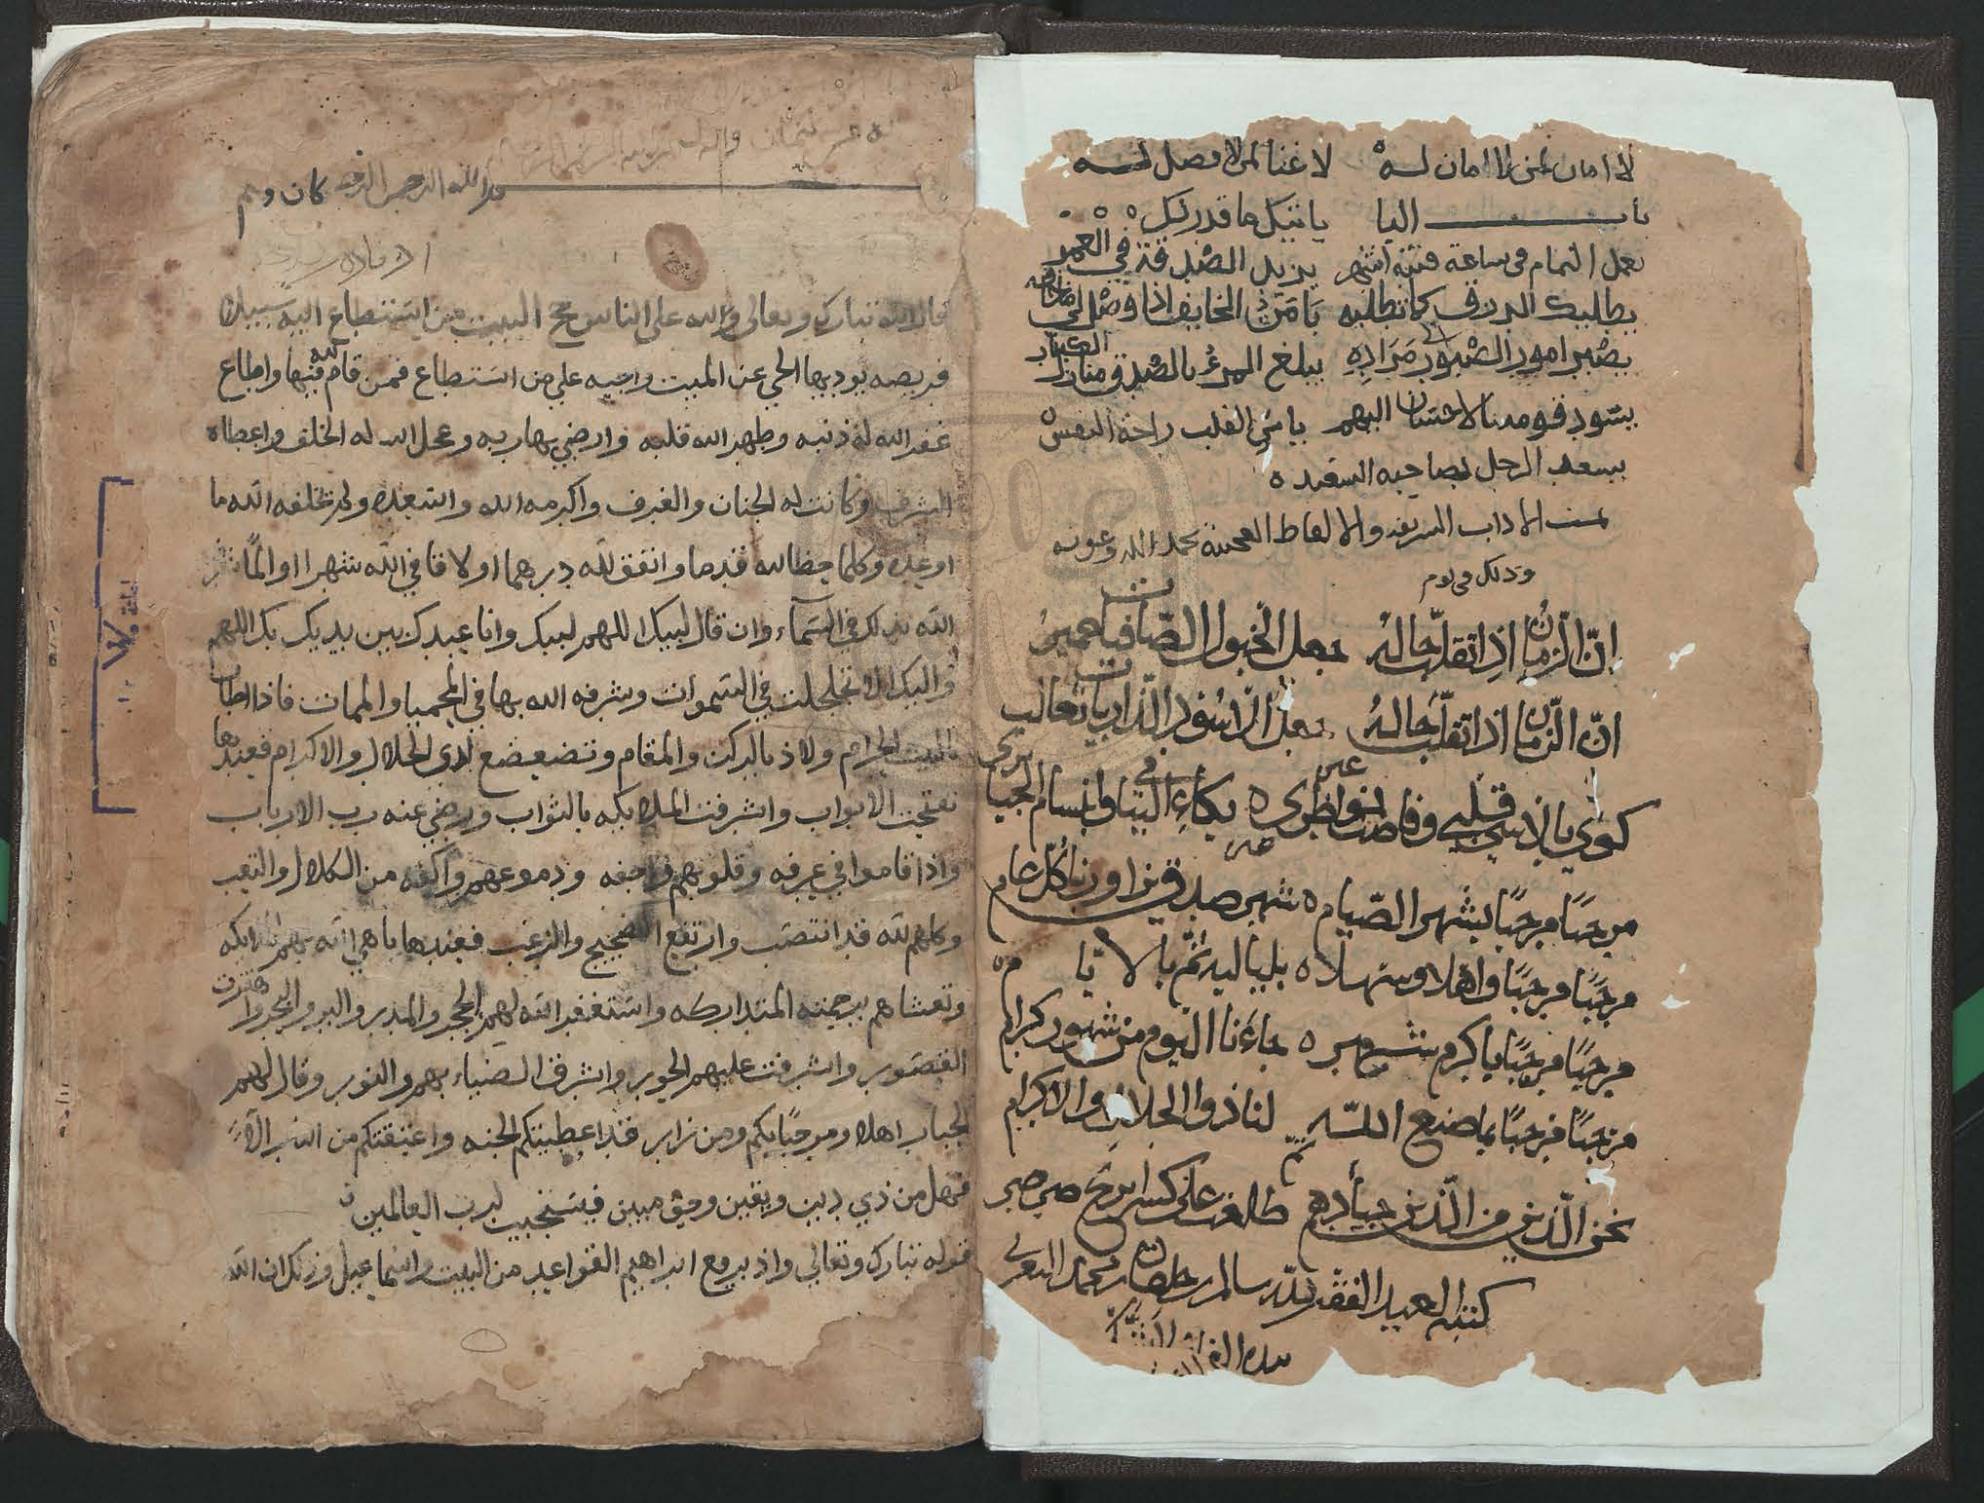 لا امان لمن لا امان له لا غنا لمن لا فضل له
باب اليا ياتيك ما قدر لك
يعمل النمام في ساعة فتنة اشهر يزيد الصدقة في العمر
يطلبك الرزق كما تطلبه يامن الخايف اذا وصل الى ماخافه
يصبر امور الصبور الى مراده يبلغ المرء بالصدق منازل الكبار
يسود قومه بالاحسان اليهم ياس القلب راحة النفس
يسعد الرجل بصاحبه السعيد
تمت الاداب الشريفه والالفاظ العجيبة بحمد الله وعونه
وذلك في يوم
انّ الزمان اذا تقلبت حاله جعل الخيول الصافيات حمير
انّ الزمان اذا تقلبت حاله جعل الاسود الذاريات ثعالب
كوى بالاسى قلبي وفاضت نواظري بكاء البتا وابتسام الحيا
مرحبًا مرحبًا بشهر الصّيام شهر صدق يزاورنا كل عام
مرحبًا مرحبًا واهلا وسهلا بلياليه ثم بالايام
مرحبًا مرحبًا باكرم شهر جاءنا اليوم من شهور كرام
مرحبًا مرحبًا بما صنع الله لنا ذو الجلال والاكرام
نحن الذين من الذين جيادهم طلعت على كسرى بريح صرصر
كتبه العبد الفقير لله سالم بن خلفان بن محمد
بيده
بسم الله الرحمن الرحيم
قال الله تبارك وتعالى ولله على الناس حج البيت من استطاع اليه سبيلا
فريضه يوديها الحي عن الميت واجبه على من استطاع فمن قام لله فيها واطاع
غفر الله له ذنبه وطهر الله قلبه وارضي بها ربه وعجل الله له الخلف واعطاه
الشرف وكانت له الجنان والغرف واكرمه الله واسعده ولم يخلفه الله ما
اوعده وكلما خطا لله قدما وانفق لله درهما او لاقا في الله شهرا او المًا شكر
الله بذلك في السماء وان قال لبيك اللهم لبيك وانا عبدك بين يديك بك اللهم
واليك الا تجلجلت في السموات وشرفه الله بها في المحيا والممات فاذا طاف
بالبيت الحرام ولاذ بالركن والمقام وتضعضع لذي الجلال والاكرام فعندها
تفتحت الابواب واشرفت الملايكه بالثواب ورضي عنه رب الارباب
واذا قاموا في عرفه وقلوبهم واجفه ودموعهم واكفه من الكلال والتعب
وكلهم لله قد انتصب وارتفع الضجيج والرغب فعندها باهى الله بهم ملايكه
وتغشاهم برحمته المتداركه واستغفر الله لهم الحجر والمدر والبر والبحر واهتزت
القصور واشرفت عليهم الحور واشرق الضياء بهم والنور وقال لهم
الجبار اهلا ومرحبًا بكم ومن زار قد اعطيتكم الجنه واعتقتكم من النار الا
فهل من ذي دين ويقين وحق مبين فيستجيب لرب العالمين
قوله تبارك وتعالى واذ يرفع ابراهيم القواعد من البيت واسماعيل وذلك ان الله